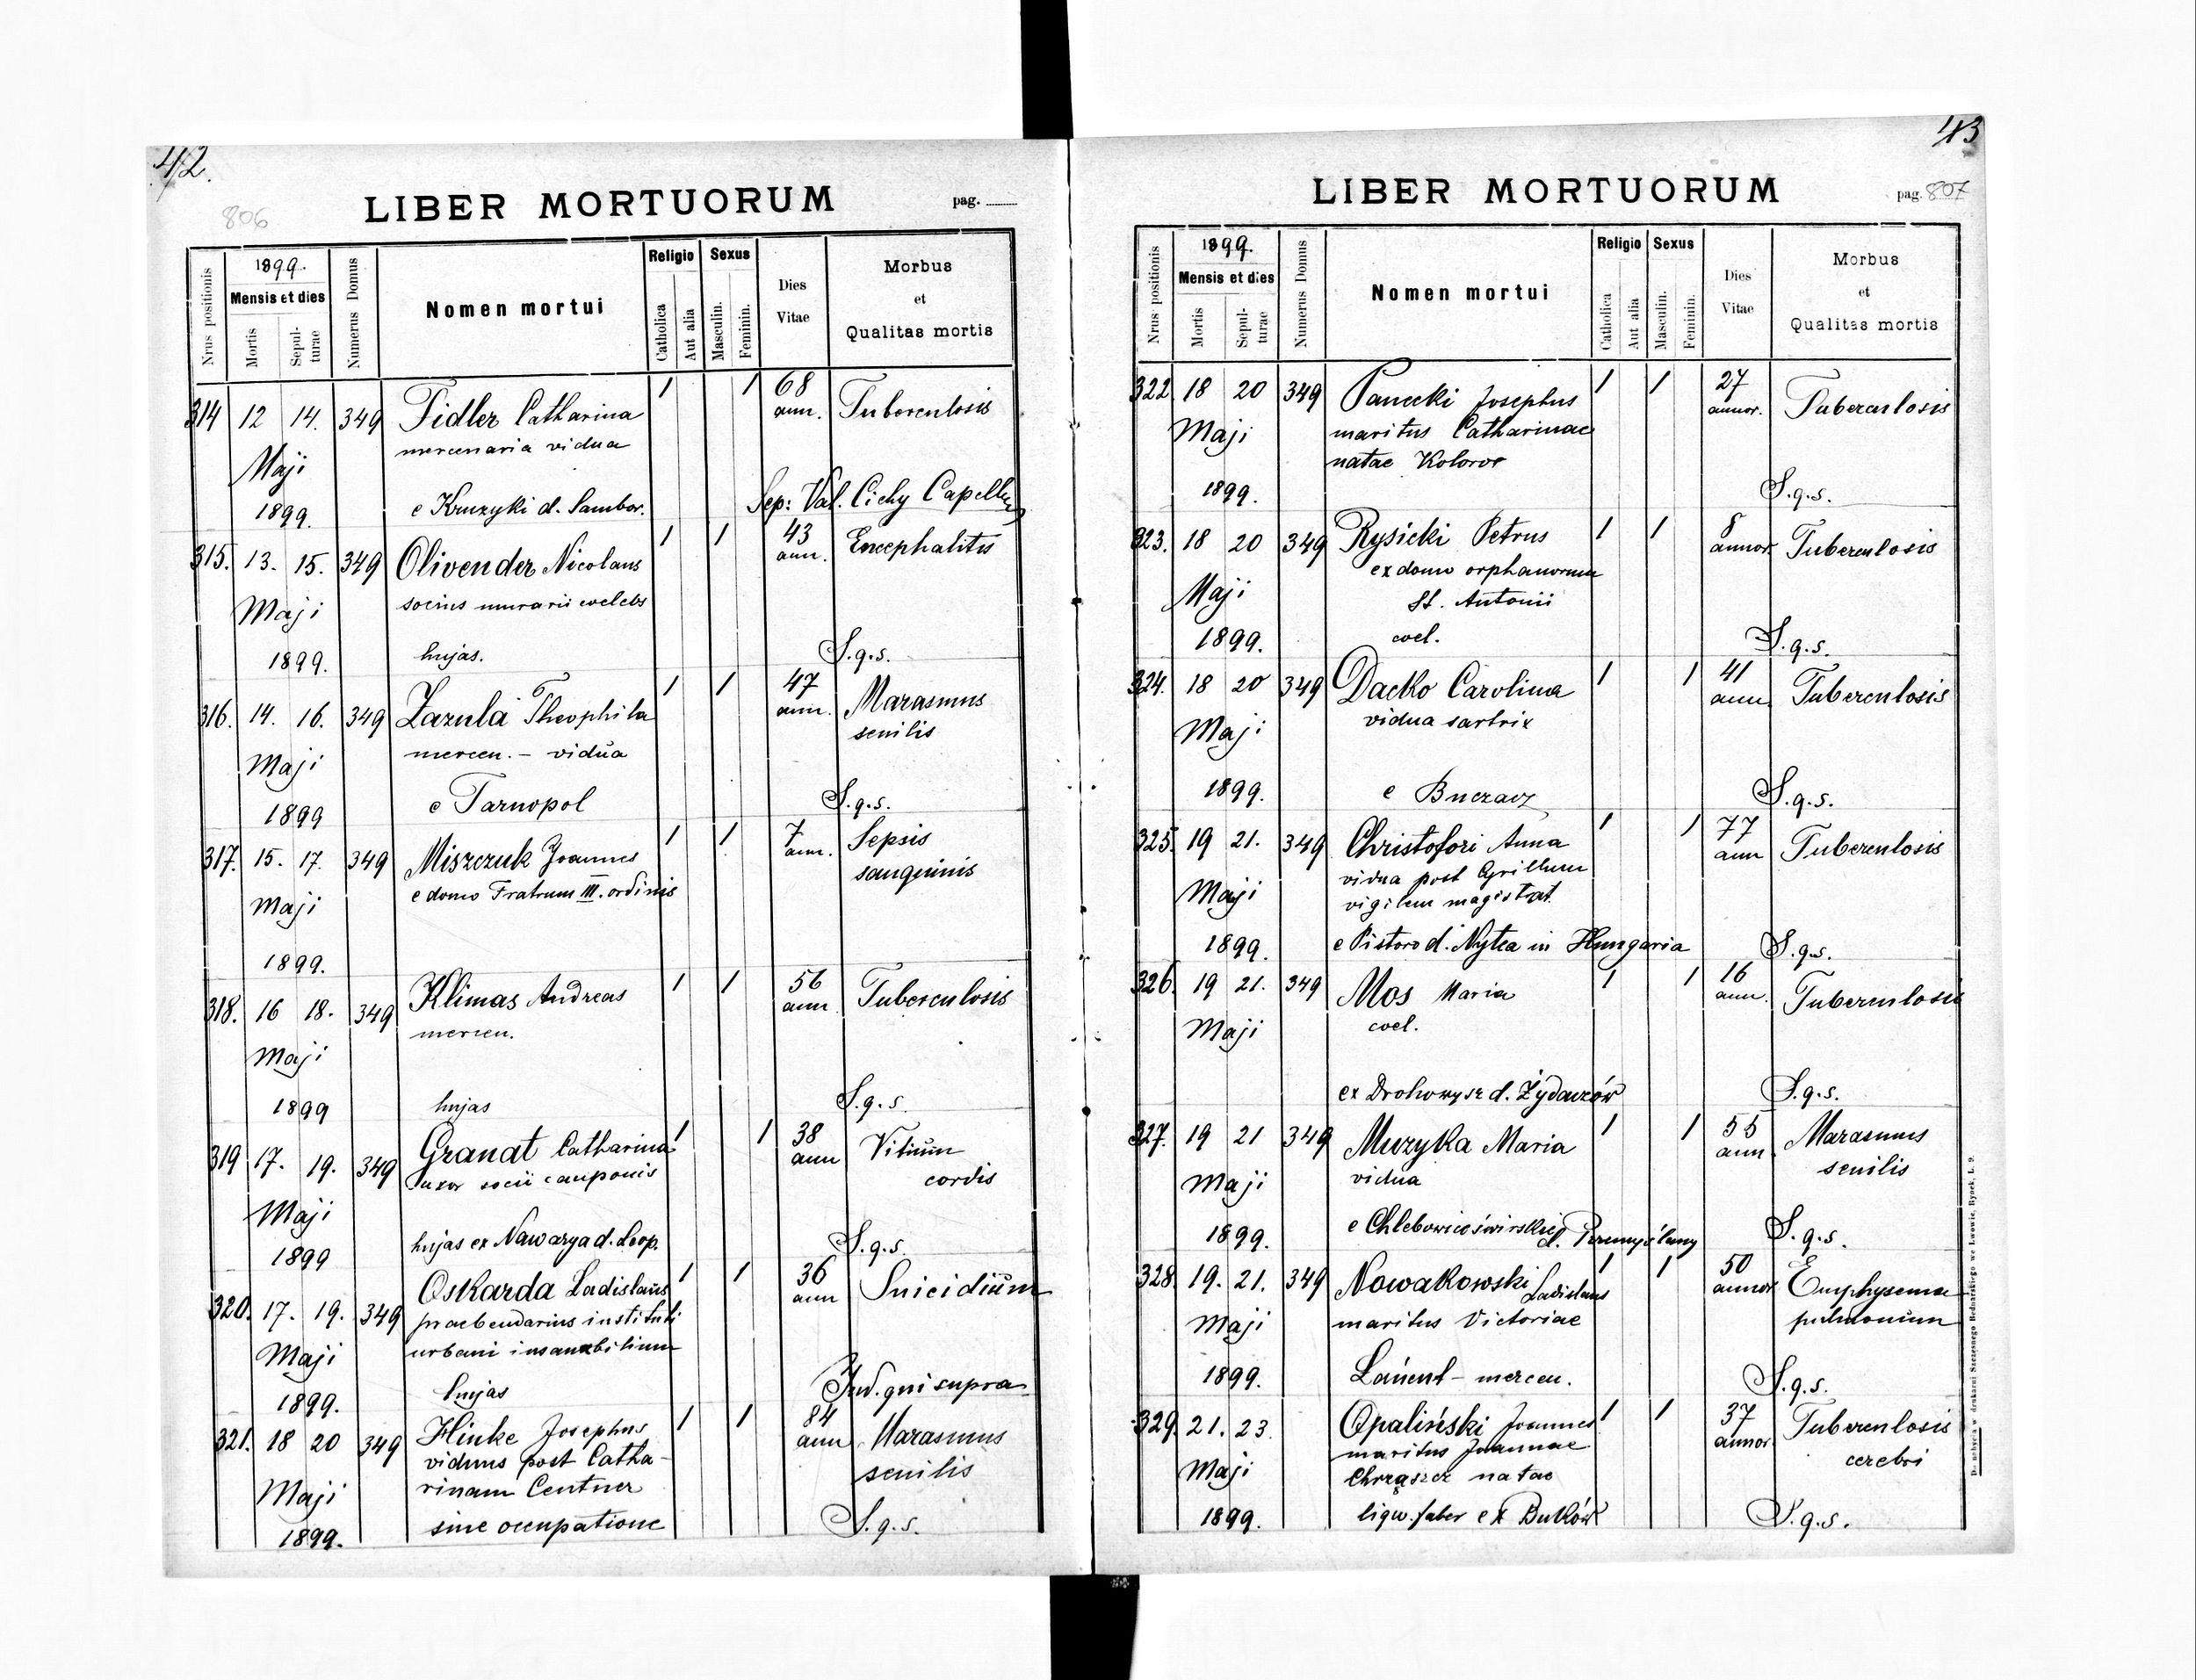 42.
806
LIBER MORTUORUM
pag.
Nrus positionis
1899.
Mensis et dies
Mortis
Sepul-
turae
Numerus Domus
Nomen mortui
Religio
Catholica
Aut alia
Sexus
Masculin.
Feminin.
Dies
Vitae
Morbus
et
Qualitas mortis
314 12 14. 349 Fidler Catharina 1 1 68 ann. Tuberculosis
Maji mercenaria vidua
1899. e Kruzyki d. Sambor. Sep: Val. Cichy Capell
315. 13. 15. 349 Olivender Nicolaus 1 1 43 ann. Encephalitis
Maji socius murarii coelebs
1899. hujas. S.q.s.
316. 14. 16. 349 Zazula Theophila 1 1 47 ann. Marasmus
senilis
Maji mercen. - vidua
1899 e Tarnopol S.q.s.
317. 15. 17. 349 Miszczuk Joannes 1 1 7 ann. Sepsis
sanguinis
Maji e domo Fratrum III. ordinis
1899.
318. 16 18. 349 Klimas Andreas 1 1 56 ann Tuberculosis
Maji mercen.
1899 hujas S.q.s.
319 17. 19. 349 Granat Catharina 1 1 38 ann Vitium
cordis
uxor socii cauponis
Maji
1899 hujas ex Nawarya d. Leop. S.q.s.
320. 17. 19. 349 Oskarda Ladislaus 1 1 36 ann Suicidium
praebendarius instituti
Maji urbani insanabilium
1899. hujas Ind. qui supra
321. 18 20 349 Hinke Josephus 1 1 84 ann. Marasmus
senilis
viduus post Catha-
Maji rinam Centner
1899. sine occupatione S.q.s.
43
LIBER MORTUORUM
pag. 807
Nrus positionis
1899.
Mensis et dies
Mortis
Sepul-
turae
Numerus Domus
Nomen mortui
Religio
Catholica
Aut alia
Sexus
Masculin.
Feminin.
Dies
Vitae
Morbus
et
Qualitas mortis
322 18 20 349 Panecki Josephus 1 1 27 annor. Tuberculosis
Maji maritus Catharinae
natae Koloros
1899. S.q.s.
323. 18 20 349 Rysicki Petrus 1 1 8 annor. Tuberculosis
ex domo orphanorum
Maji St. Antonii
1899. coel. S.q.s.
324. 18 20 349 Dacko Carolina 1 1 41 ann. Tuberculosis
Maji vidua sartrix
1899. e Buczacz S.q.s.
325. 19 21. 349 Christofori Anna 1 1 77 ann Tuberculosis
vidua post Cyrillum
Maji vigilem magistrat.
1899. e Pistoro d. Nytra in Hungaria S.q.s.
326. 19 21. 349 Mos Maria 1 1 16 ann. Tuberculosis
Maji coel.
ex Drohowyże d. Żydaczów S.q.s.
327. 19 21 349 Muzyka Maria 1 1 55 ann. Marasmus
senilis
Maji vidua
1899. e Chlebowice świrskie d. Przemyślany S.q.s.
328. 19. 21. 349 Nowakowski Ladislaus 1 1 50 annor Emphysema
pulmonum
Maji maritus Victoriae
1899. Łańcut - mercen. S.q.s.
329 21. 23. Opaliński Joannes 1 1 37 annor. Tuberculosis
cerebri
maritus Joannae
Maji Chrząszcz natae
1899. lign. faber ex Buków S.q.s.
Do nabycia w drukarni Szczęsnego Bednarskiego we Lwowie, Rynek, L. 9.